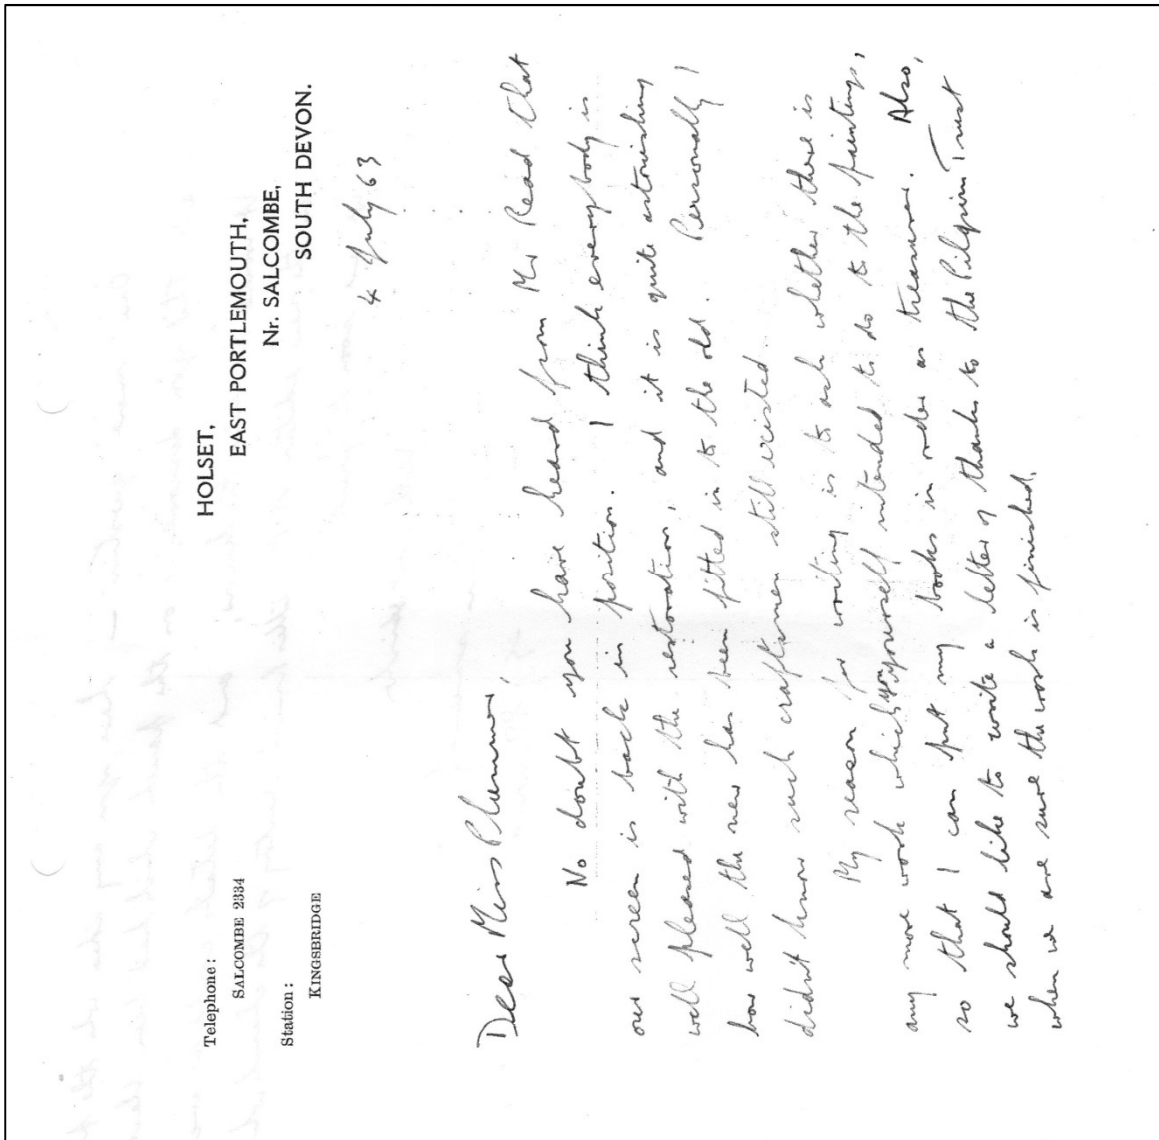 Telephone:
SALCOMBE 2334
Station:
KINGSBRIDGE
HOLSET,
EAST PORTLEMOUTH,
Nr. SALCOMBE,
SOUTH DEVON.
4 July 63
Dear Miss Plummer,
No doubt you have heard from Mr Read that
our screen is back in position. I think everybody is
well pleased with the restoration, and it is quite astonishing
how well the new has been fitted in to the old. Personally I
didn't know such craftsmen still existed.
My reason for writing is to ask whether there is
any more work which you yourself intended to do to the paintings,
so that I can put my books in order as treasurer. Also,
we should like to write a letter of thanks to the Pilgrim Trust
when we are sure the work is finished.